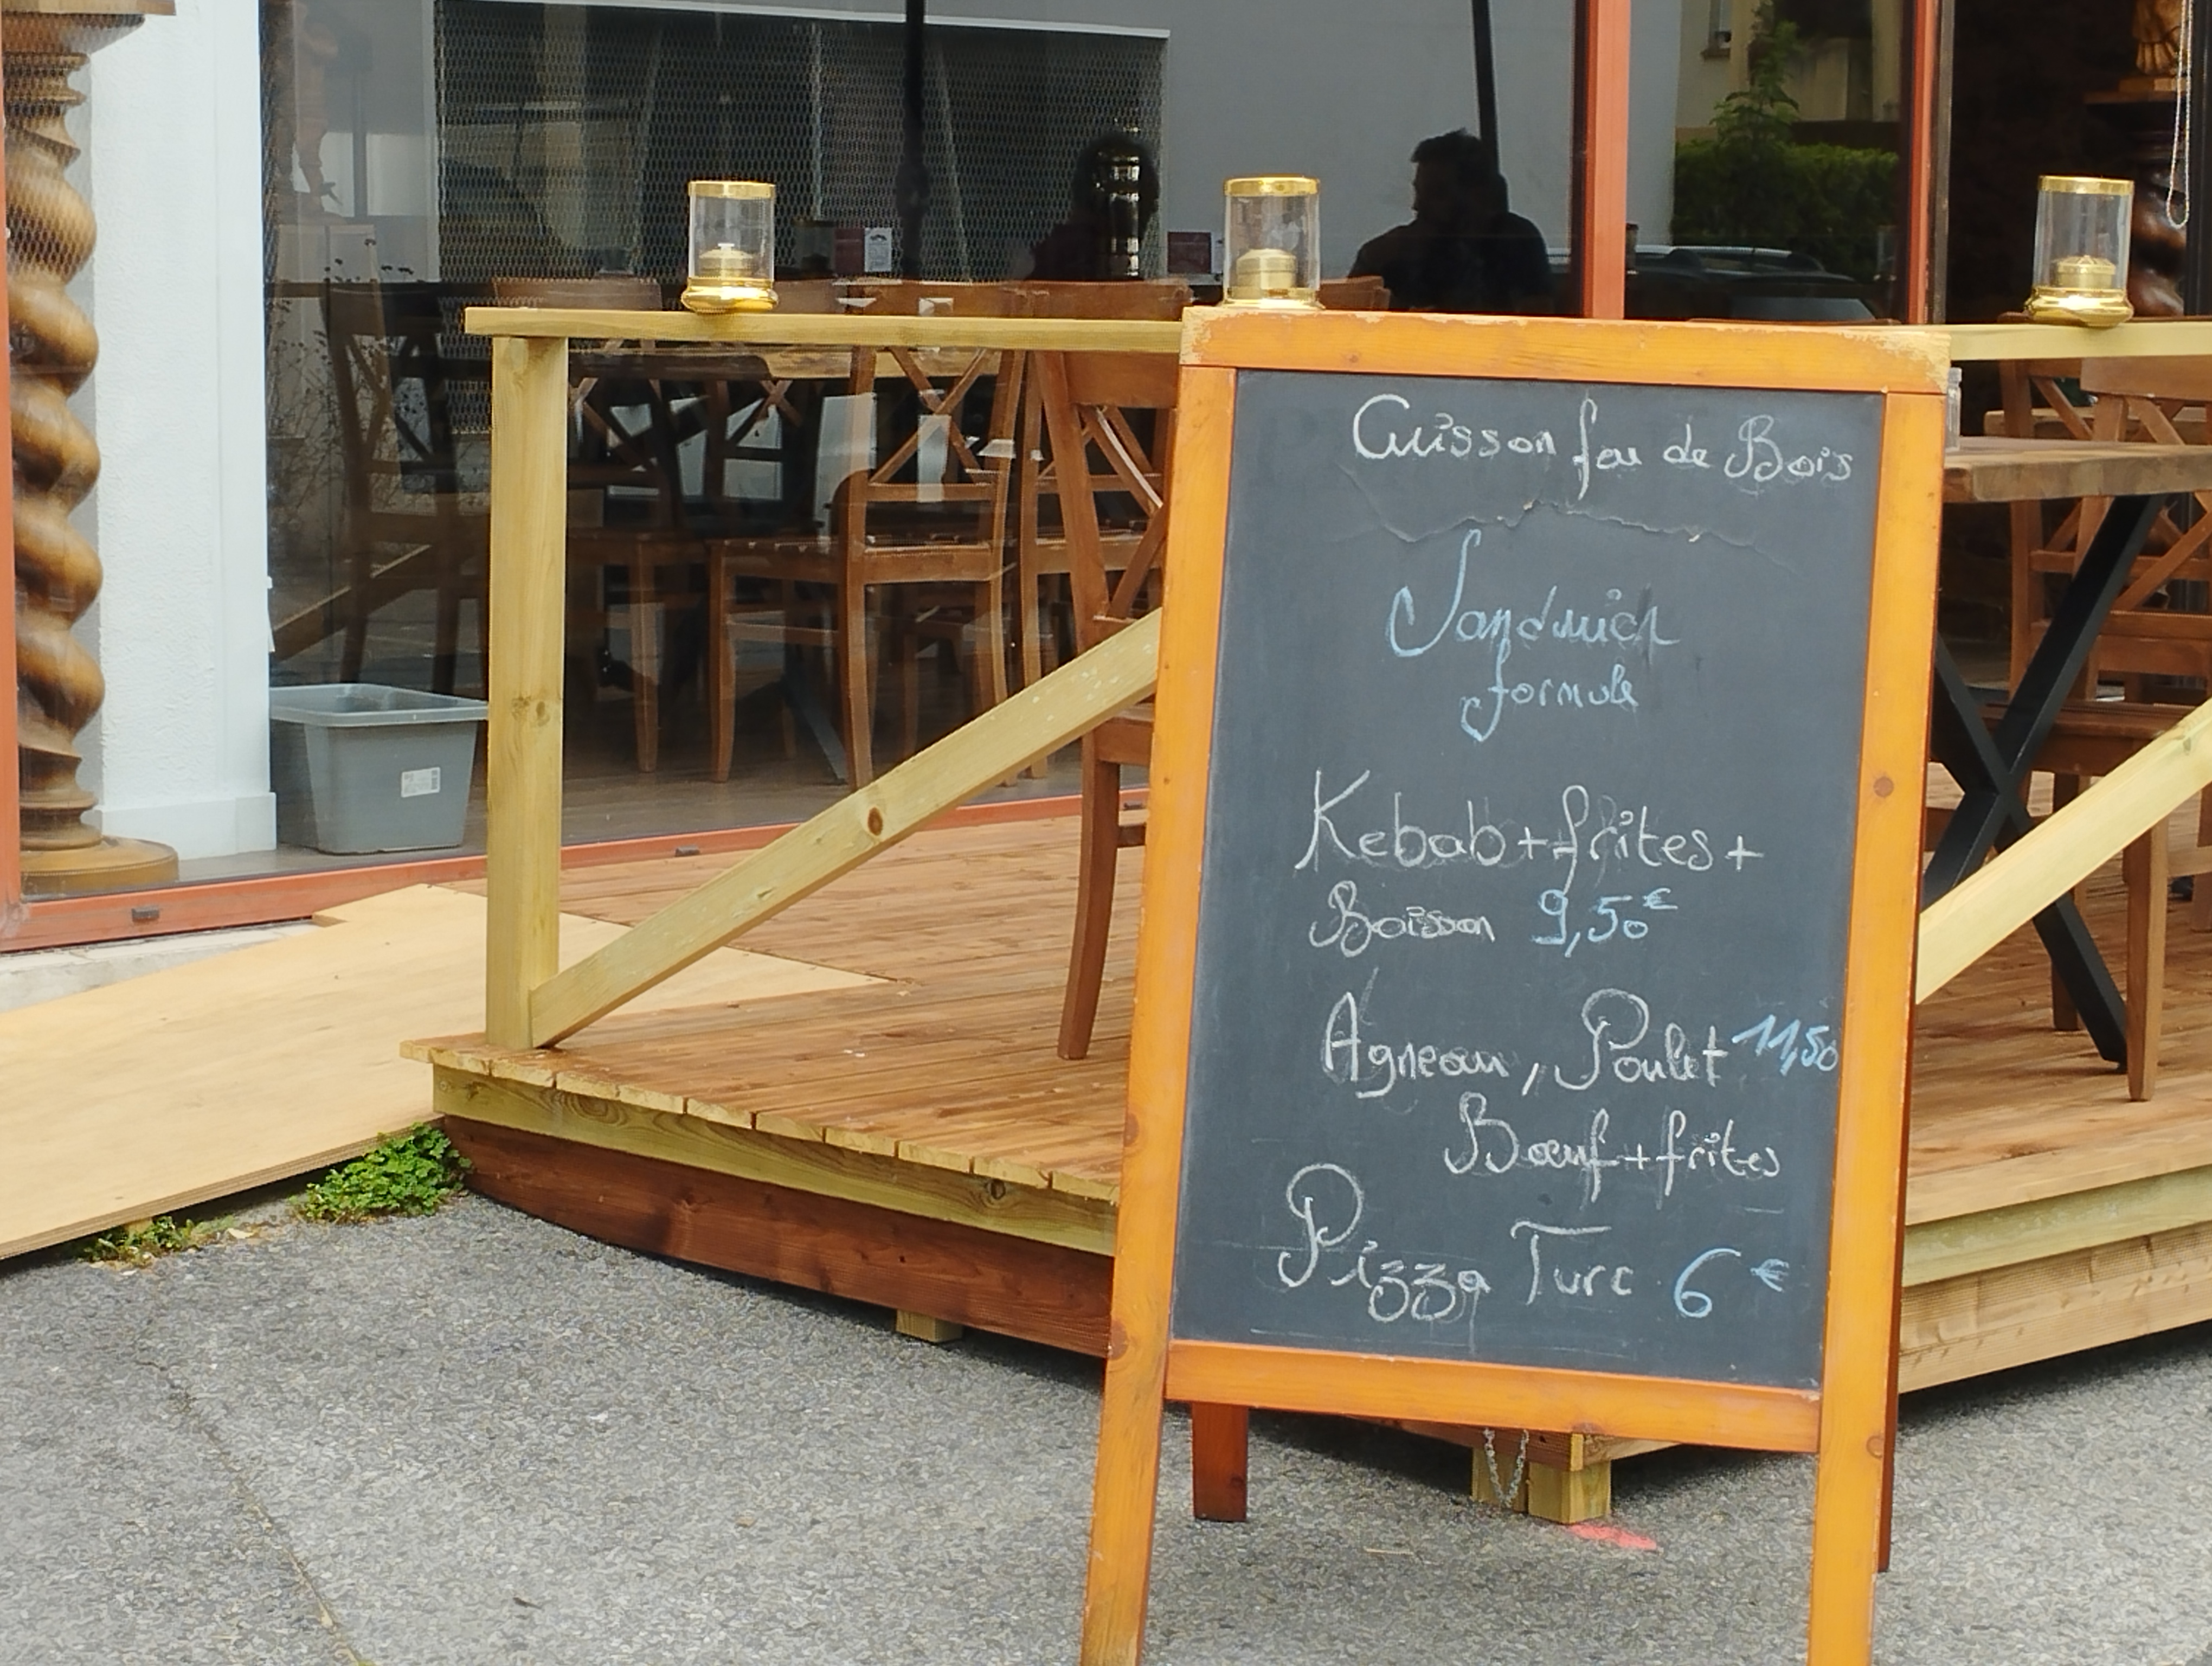 Cuisson feu de Bois
Sandwich
formule
Kebab+frites+
Boisson 9,50€
Agneau, Poulet 11,50
Bœuf+frites
Pizza Turc 6€